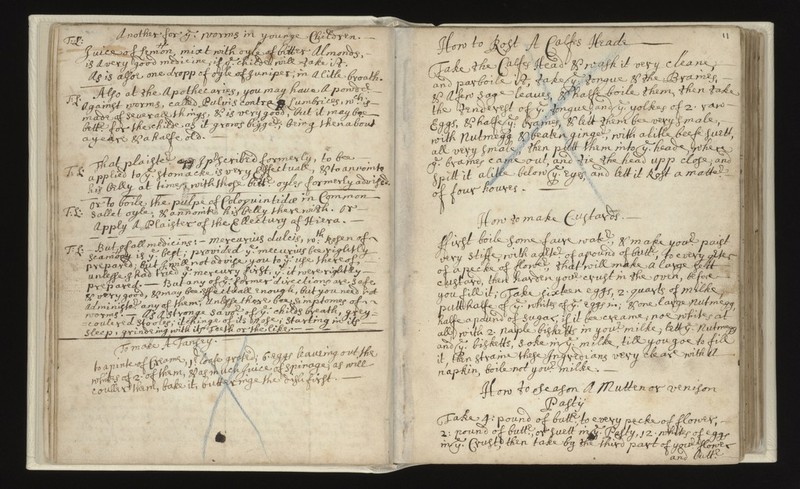 Another for yͤ worms in younge Children.
T:S: Juice of lemon, mixt with oyle of bitter Almonds,
is a very good medicine, if yͤ child will take it.
As is also one dropp of oyle of Juniper, in a litle broath.
T:S: Also at the Apothecaries, you may have a powder
against worms, called, Pulvis contra Lumbricos, wᶜʰ is
made of severall things, & is very good, but it may be
bettʳ for the childe, as it grows bigger, being then about
a yeare & a halfe old.
T:S: That plaister prescribed formerly, to be
applied to yͤ stomacke is very effectuall, & to annointe
his belly at times, with those bittʳ oyles formerly advised
T:S: or to boile, the pulpe of Coloquintida in Common
Sallet oyle, & annointe his belly therewith. or
Apply a Plaister of the Electuary of Hiera.
T:S: But of all medicines: mercurius dulcis, wᵗʰ Rosen of
scamony is yͤ best, provided yͤ mercurius bee rightly
prepared, but I would not advise you to yͤ use thereof,
unlesse I had tried yͤ mercury first, yᵗ it were rightly
prepared. But any of yͤ former directions are safe
& very good, & may bee effectuall enough, but you need not
administer any of them, unlesse there bee simptomes of
worms. As a stronge savor of yͤ childs breath, grey
coulered stooles, itchinge of its nose, starting in its
sleep, grindeing with its teeth or the like.
To make A Tansey.
to a pinte of Creame, 1: loafe grated, 6: eggs leaving out the
whites of 2: of them, & as much juice of spinage, as will
couler them, bake it, buttʳinge the dish first.
11
How to Rost A Calfes Heade
Take the Calfes Head & wash it very cleane,
and parboile it, take yͤ tongue & the Braines,
& a few sage leaves & halfe boile them, then take
the tenderest of yͤ tongue and yͤ yolkes of 2: raw
Eggs, & halfe yͤ braines, & lett them bee very smale,
with Nutmegg & beaten ginger, with a litle beefe suett,
all very smale, then putt them into yͤ heade where
yͤ braines came out, and tie the head upp close, and
spitt it a litle below yͤ Eyes, and lett it Rost a matter
of four houres.
How to make Custards.
First boile some faire watʳ, & make your paist
very stiffe, with a qtʳ of a pound of buttʳ, to every qtʳ
of a pecke of flower, that will make a large
custard, then harden your crust in the oven, before
you fill it, Take sixteen eggs, 2: quarts of milke,
putt halfe of yͤ whites of yͤ eggs in, & one large nutmegg
halfe a pound of sugar, if it bee creame, noe whites at
all, with 2: naple bisketts in your milke, lett yͤ Nutmegg
and yͤ biskitts, soke in yͤ milke, till you goe to fill
it, then straine these Ingredians very cleare with a
napkin, boile not your milke.
How to season A Mutten or venison
Pasty
Take 4: pound of buttʳ, to every pecke of flower,
2: pound of buttʳ, or suett in yͤ Pasty, 12: whites of eggs
in yͤ Crust, then take by the third part of your flower
and buttʳ